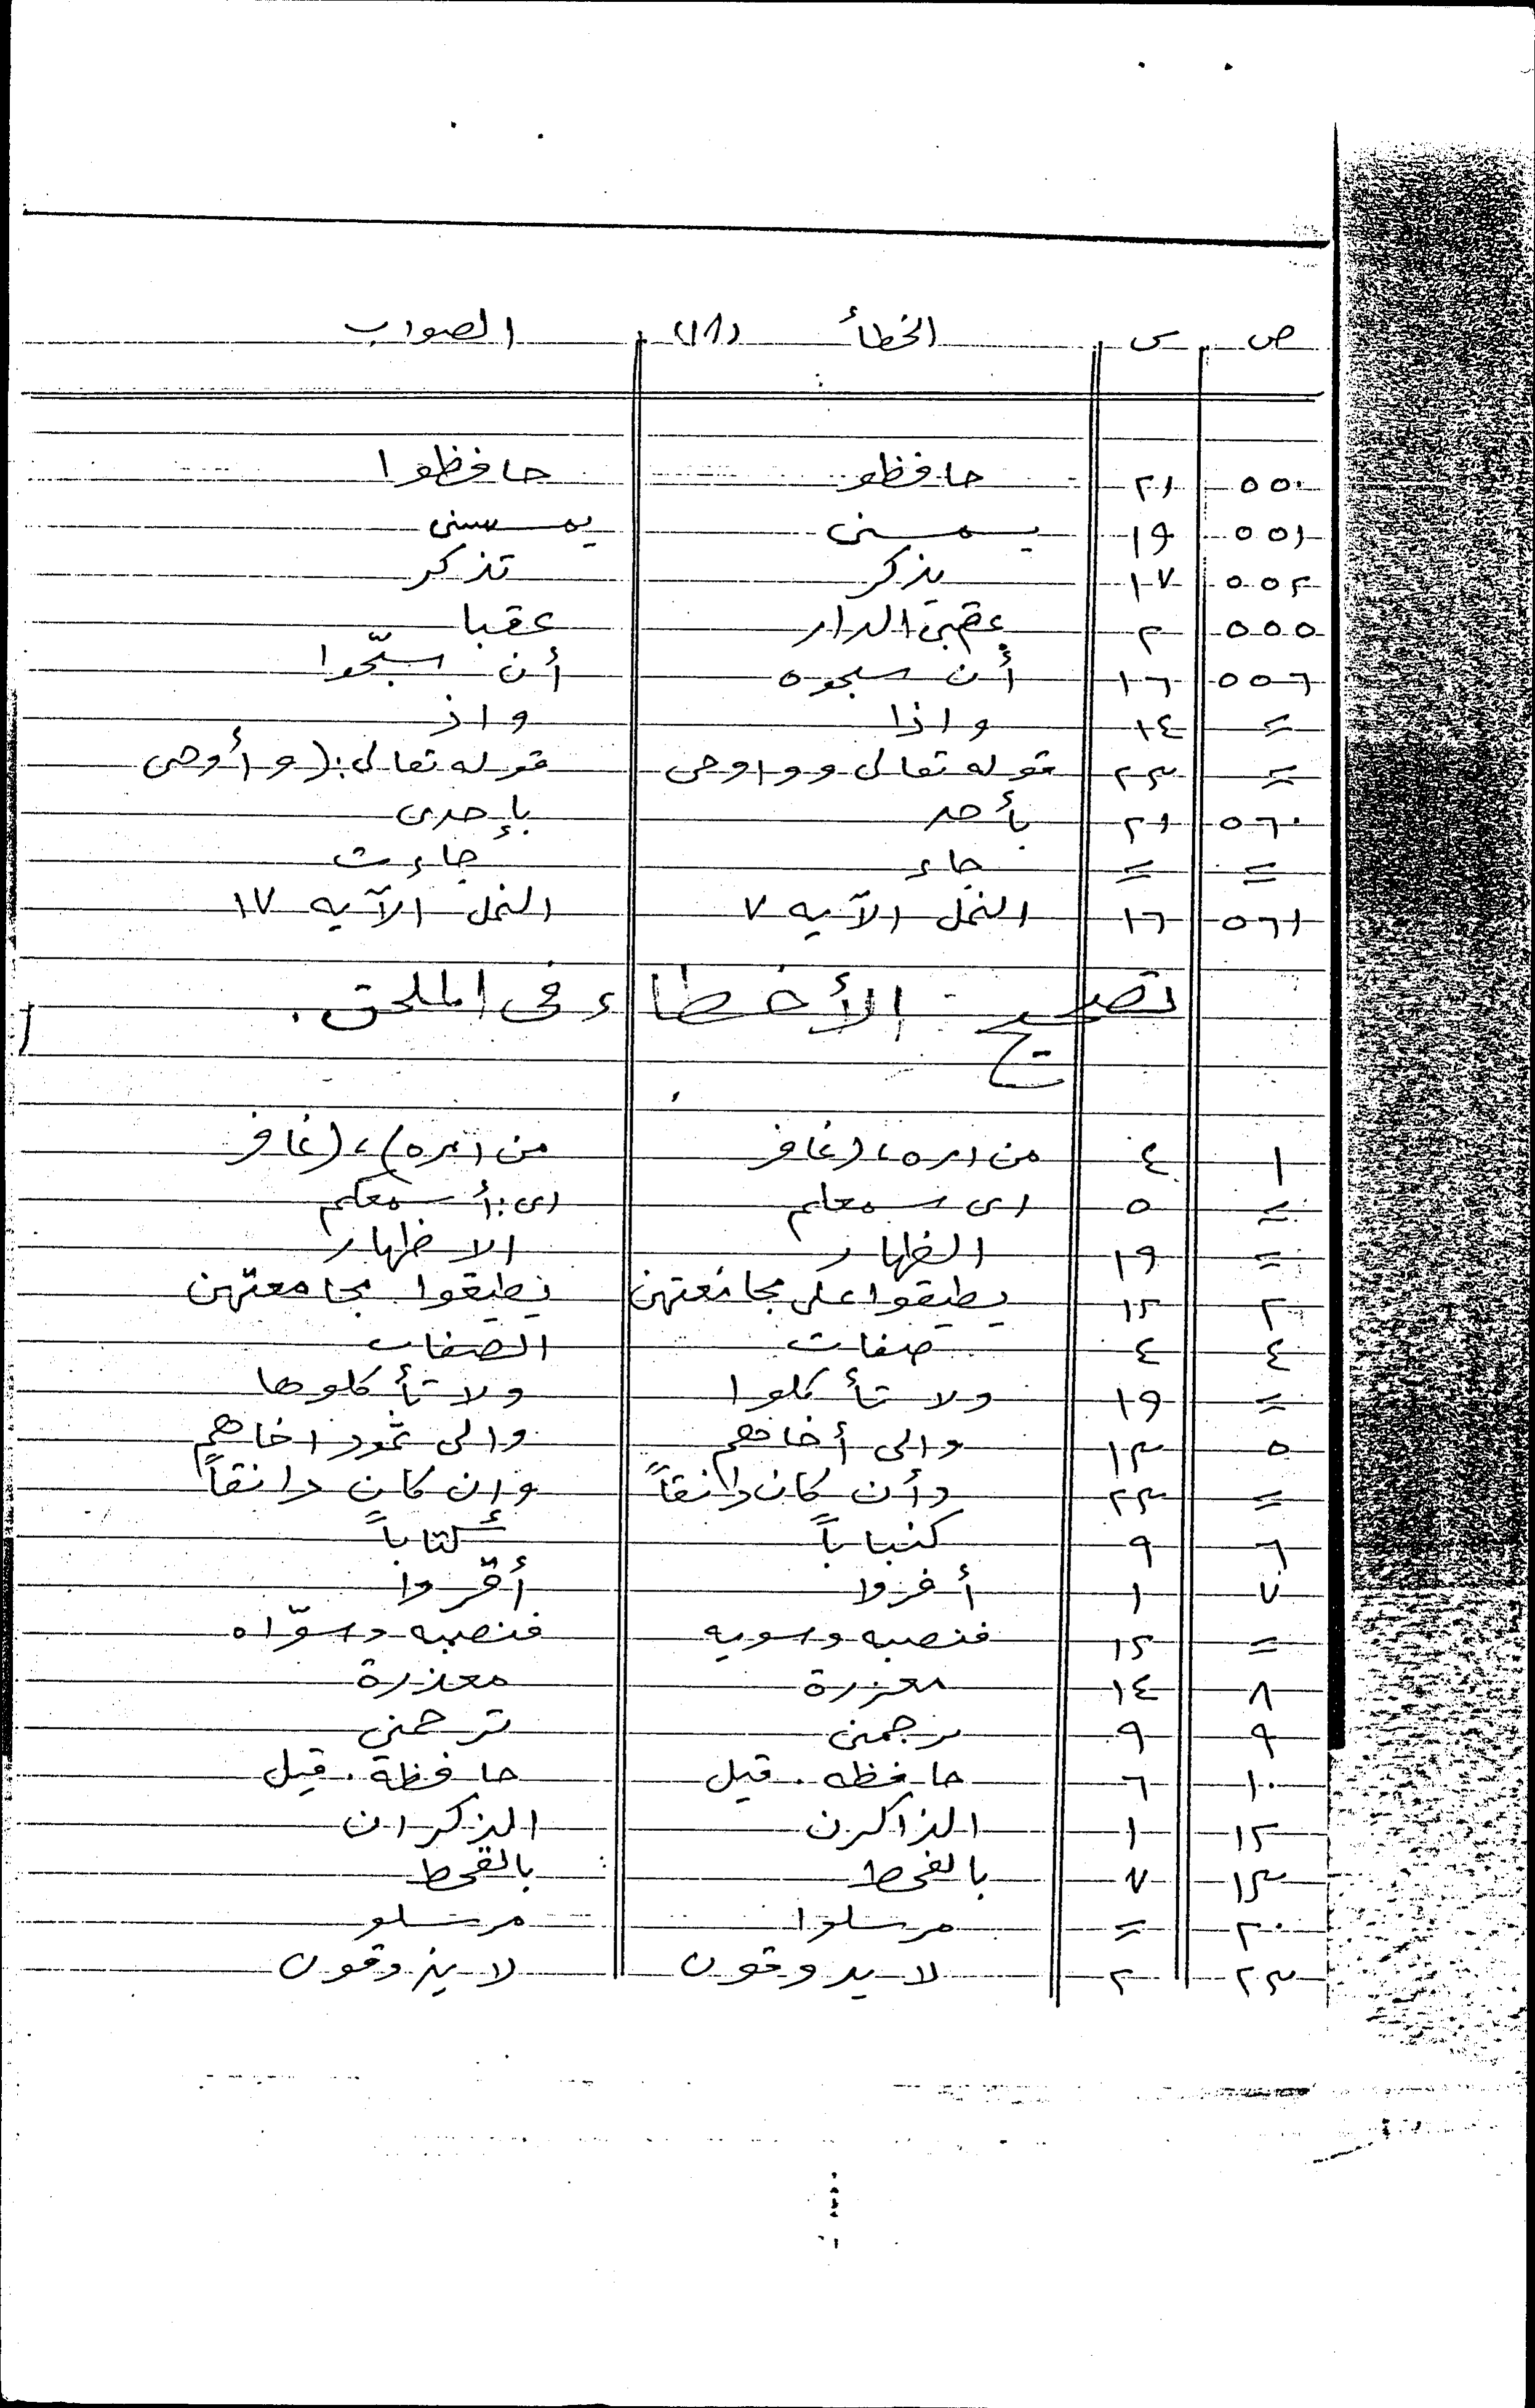 ص س الخطأ (١٨) الصواب
٥٥٠ ٢١ حافظو حافظوا
٥٥١ ١٩ يمسنى يمسسنى
٥٥٢ ١٧ يذكر تذكر
٥٥٥ ٢ عقبى الدار عقبا
٥٥٦ ١٦ أن سبحوه أن سبّحوا
= ١٤ واذا واذ
= ٢٣ قوله تعالى وواوحى قوله تعالى:(وأوحى
٥٦٠ ٢١ بأحد بإحدى
= = جاء جاءت
٥٦١ ١٦ النمل الآيه ٧ النمل الآيه ١٧
تصحيح الأخطاء فى الملحق.
١ ٤ من امره،(غافر من امره)،(غافر
= ٥ اى سمعلم اى:أسمعكم
= ١٩ الظهار الاظهار
٢ ١٢ يطيقوا على مجانعتهن يطيقوا مجامعتهن
٤ ٤ صفات الصفات
= ١٩ ولا تأكلوا ولا تأكلوها
٥ ١٣ والى أخاهم والى ثمود اخاهم
= ٢٣ وأن كان دانقاً وإن كان دانقاً
٦ ٩ كنباباً كتاباً
٧ ١ أفروا أقروا
= ١٢ فنصبه وسويه فنصبه وسوّاه
٨ ١٤ معزرة معذرة
٩ ٩ برجمنى ترحمنى
١٠ ٦ حافظه. قيل حافظة. قيل
١٢ ١ الذاكرن الذكران
١٣ ٧ بالفحط بالقحط
٢٠ = مرسلوا مرسلو
٢٣ ٢ لا يدوقون لا يذوقون